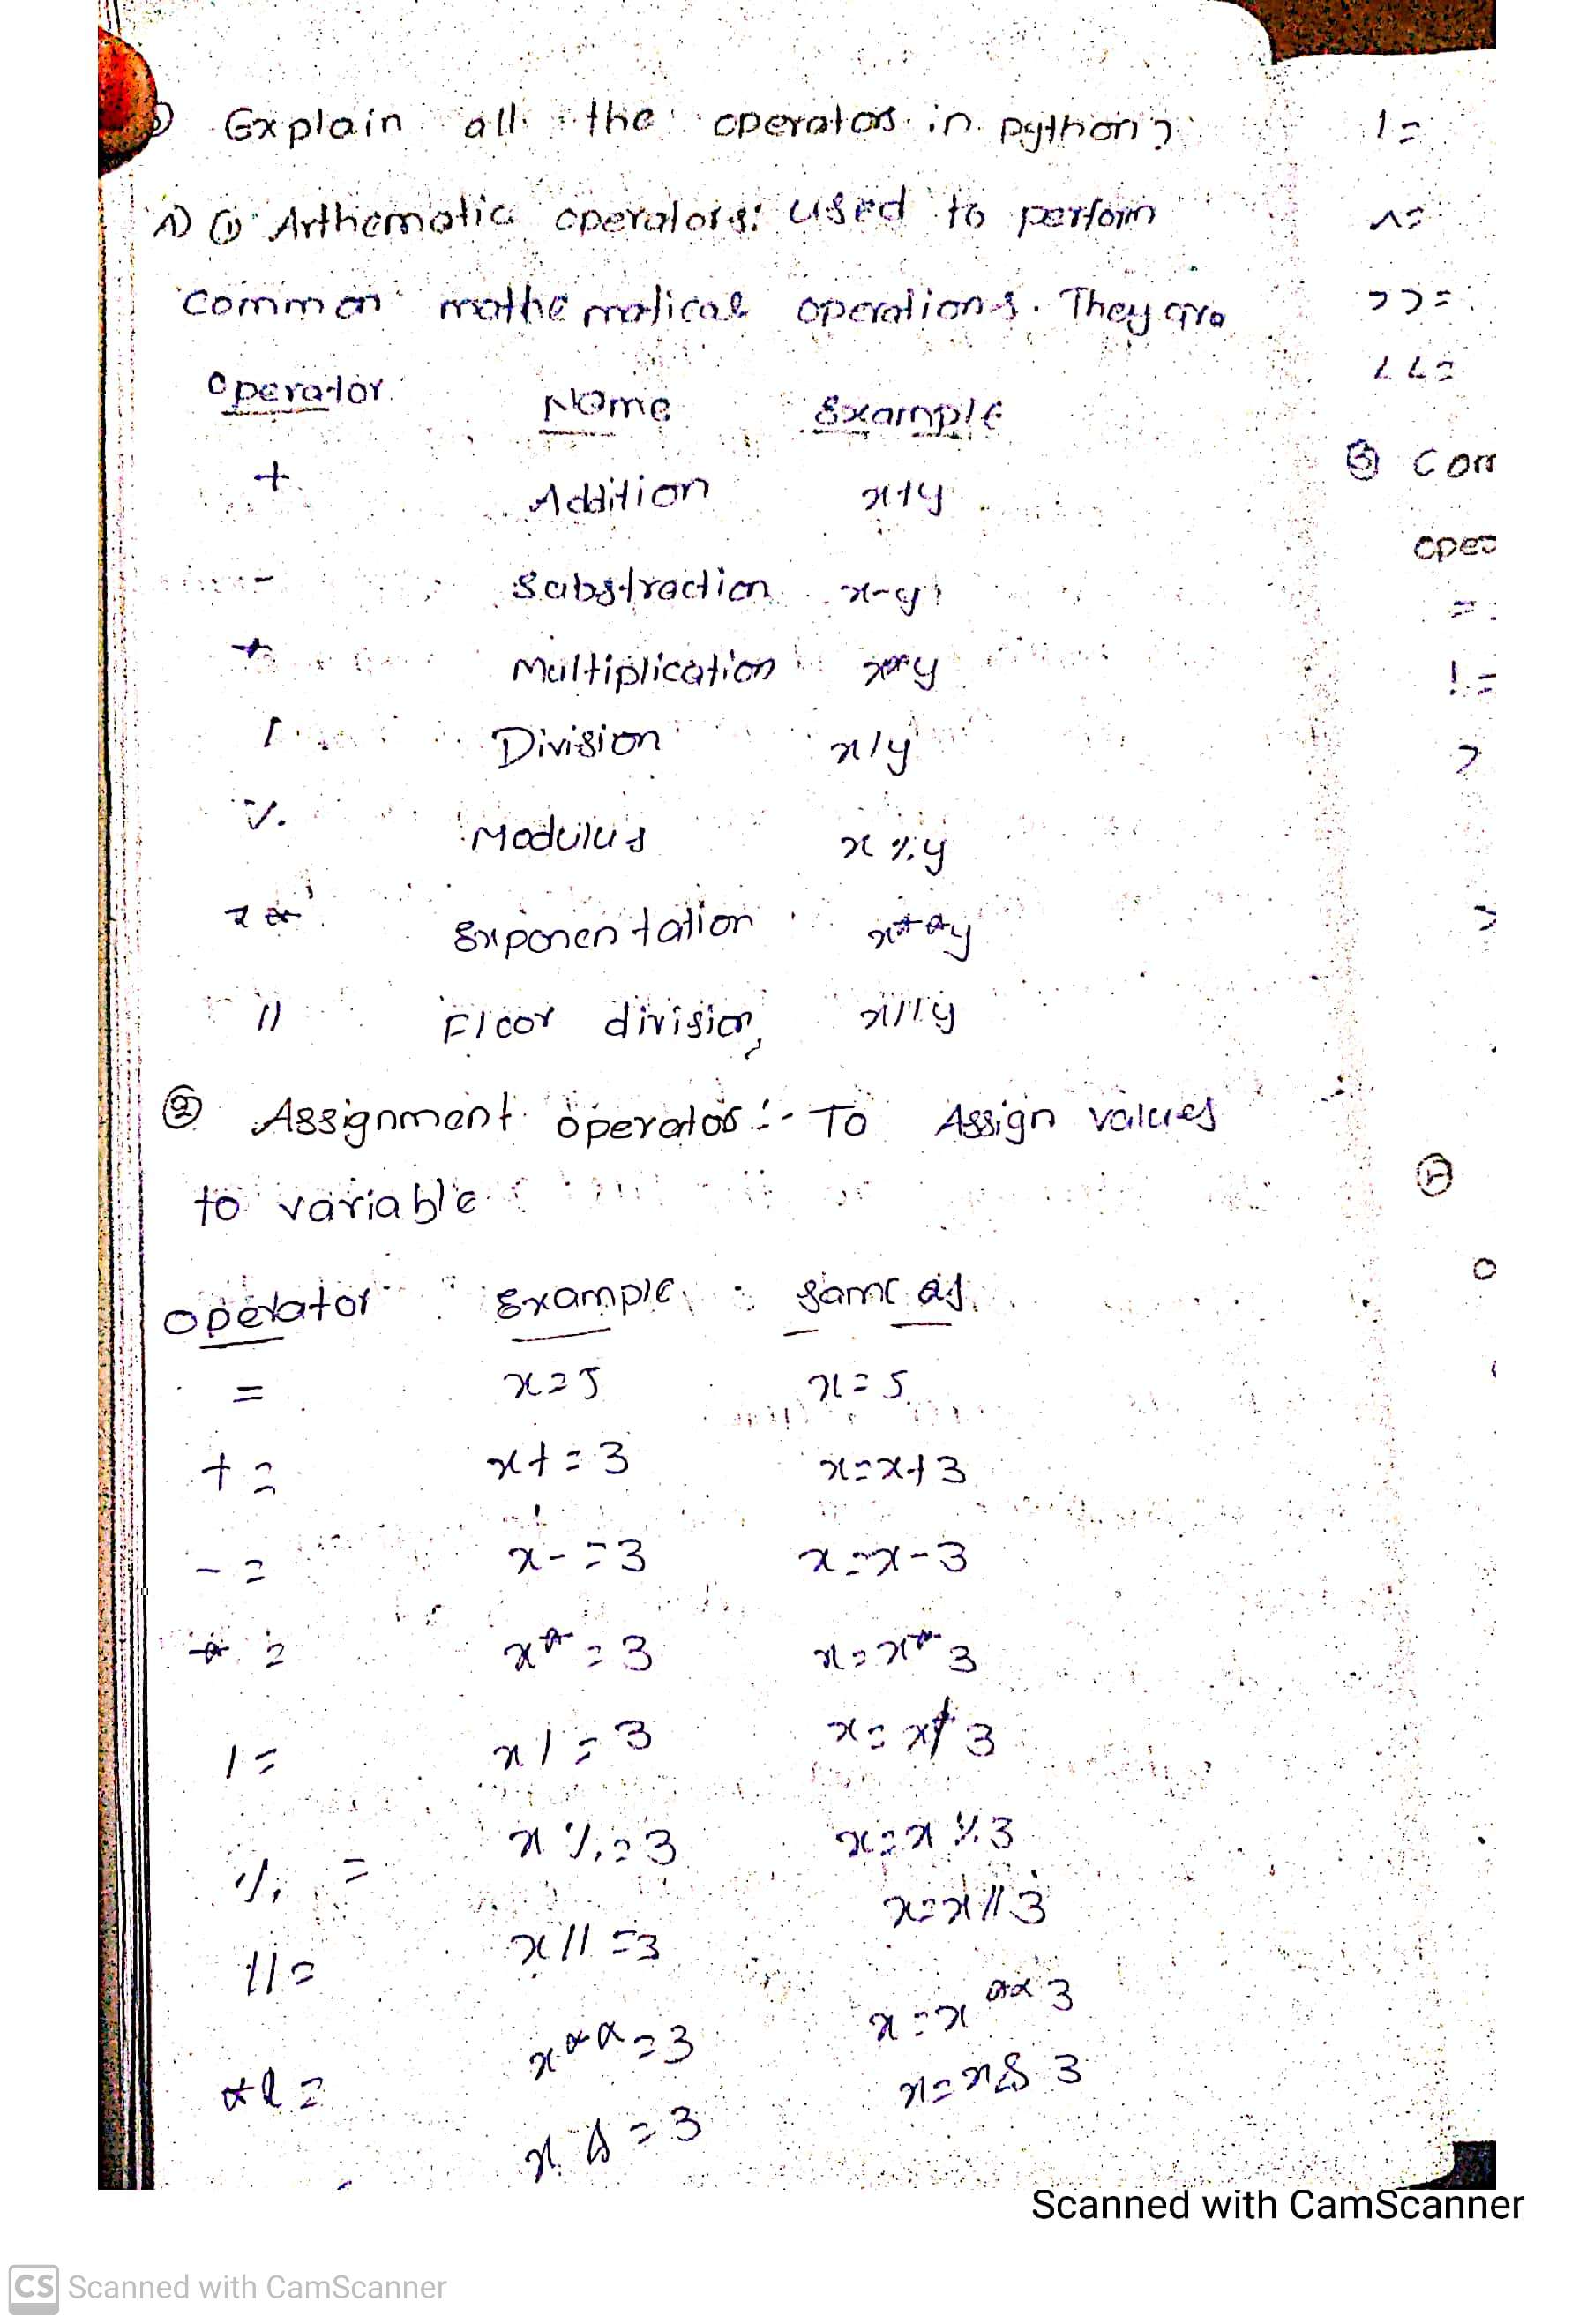 Explain all the operators in python?
A) ① Arthematic operators: used to perform
common mathematical operations. They are
Operator Name Example
+ Addition x+y
- Substraction x-y
* Multiplication x*y
/ Division x/y
% Modulus x%y
** Exponentation x**y
// Floor division x//y
② Assignment operators:- To Assign values
to variable
operator Example same as
= x=5 x=5
+= x+=3 x=x+3
-= x-=3 x=x-3
*= x*=3 x=x*3
/= x/=3 x=x/3
%= x%=3 x=x%3
//= x//=3 x=x//3
**= x**=3 x=x**3
x&=3 x=x&3
|=
^=
>>=
<<=
③ Com
oper
==
!=
>
Scanned with CamScanner
CS Scanned with CamScanner